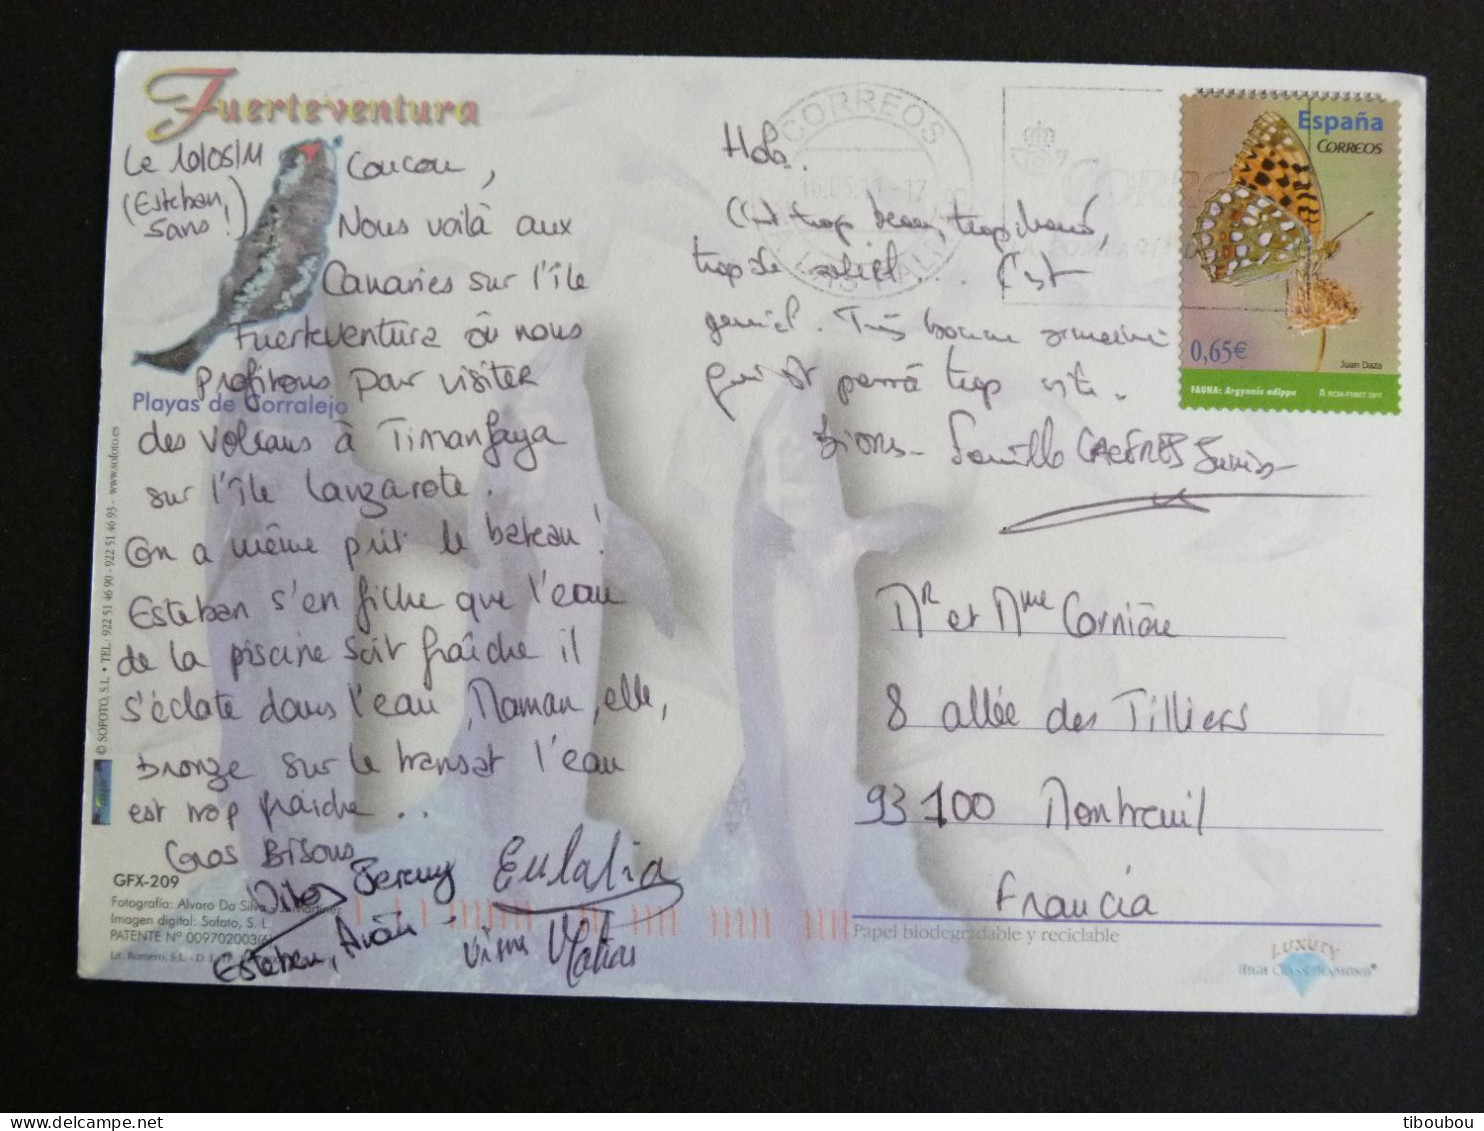 Fuerteventura
Le 10/05/11
(Esteban,
5ans!)
Coucou,
Nous voilà aux
Canaries sur l'île
Fuerteventura où nous
profitons pour visiter
Playas de Corralejo
des volcans à Timanfaya
sur l'île Lanzarote.
On a même prit le bateau!
Esteban s'en fiche que l'eau
de la piscine soit fraîche il
s'éclate dans l'eau, Maman, elle,
bronze sur le transat l'eau
est trop fraîche...
Gros Bisous
Jeremy Eulalia
Esteban,
© SOFOTO, S.L. • TEL: 922 51 46 90 - 922 51 46 93 - www.sofoto.es
GFX-209
Fotografía: Alvaro Da Silva
Imagen digital: Sofoto, S. L.
PATENTE Nº 009702003(6)
Lit. Romero, S.L. - D. L.
Hola.
C'est trop beau, trop chaud,
trop de soleil... C'est
génial. Très bonne semaine
qui est passé trop vite.
Bisous- Famille CACERES
CORREOS
España
CORREOS
0,65€
Juan Daza
FAUNA: Argynnis adippe
RCM-FNMT 2011
Mr et Mme Cornière
8 allée des Tilliers
93100 Montreuil
Francia
Papel biodegradable y reciclable
LUXURY
HIGH CLASS DIAMOND®
tiboubou